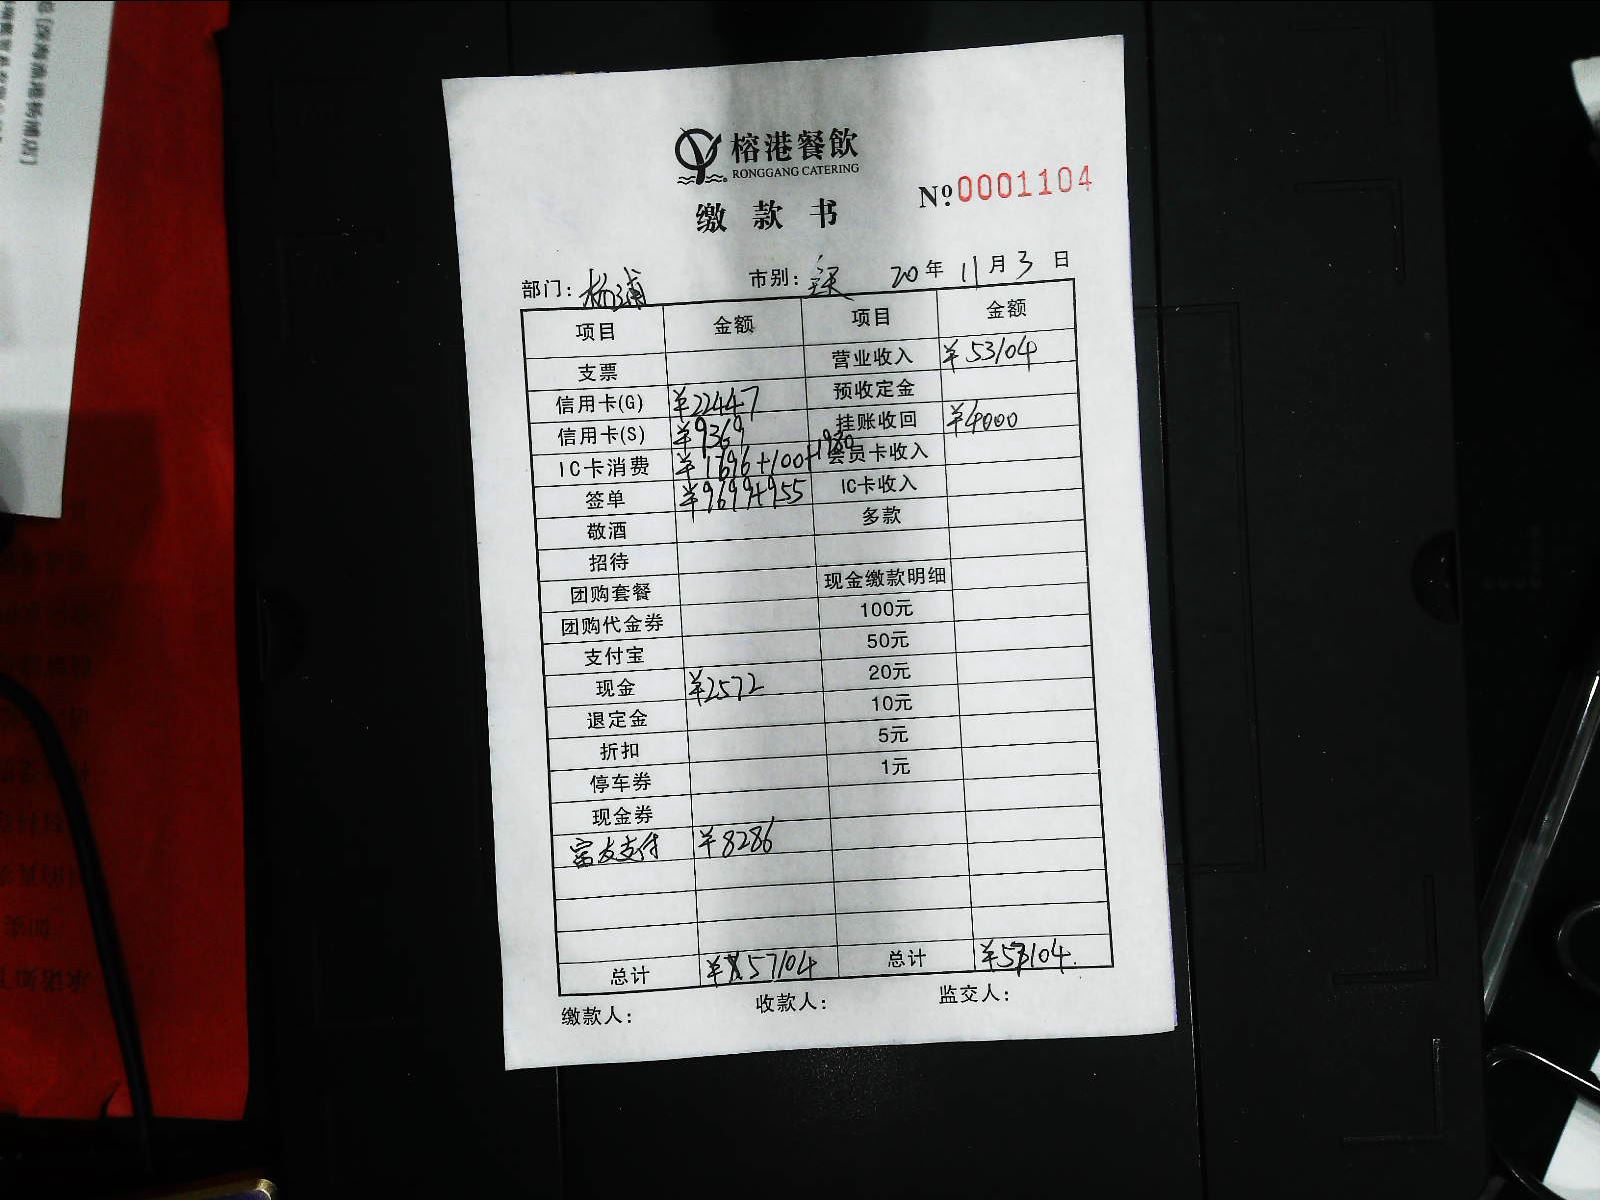 榕港餐飲
RONGGANG CATERING
缴款书 №0001104
部门: 杨浦 市别: 20年 11月 3日
项目 金额 项目 金额
支票 营业收入 ¥53104
信用卡(G) ¥22447 预收定金
信用卡(S) ¥9369 挂账收回 ¥4000
IC卡消费 ¥1696+100+1980 会员卡收入
签单 ¥9699+955 IC卡收入
敬酒 多款
招待
团购套餐 现金缴款明细
团购代金券 100元
支付宝 50元
现金 ¥2572 20元
退定金 10元
折扣 5元
停车券 1元
现金券
富友支付 ¥8286
总计 ¥57104 总计 ¥57104.
缴款人: 收款人: 监交人: